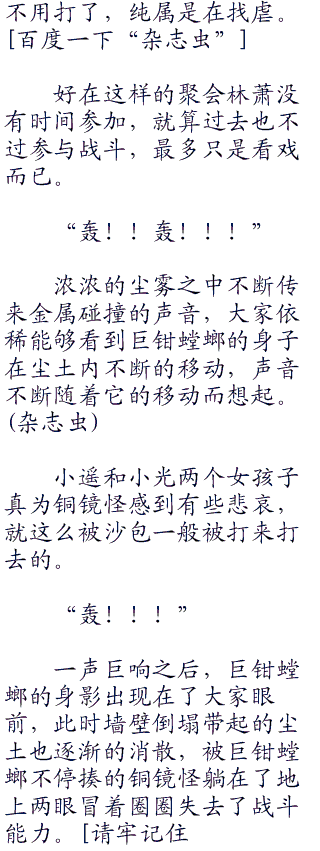 不用打了，纯属是在找虐。
[百度一下“杂志虫”]
好在这样的聚会林萧没
有时间参加，就算过去也不
过参与战斗，最多只是看戏
而已。
“轰！！轰！！！”
浓浓的尘雾之中不断传
来金属碰撞的声音，大家依
稀能够看到巨钳螳螂的身子
在尘土内不断的移动，声音
不断随着它的移动而想起。
(杂志虫)
小遥和小光两个女孩子
真为铜镜怪感到有些悲哀，
就这么被沙包一般被打来打
去的。
“轰！！！”
一声巨响之后，巨钳螳
螂的身影出现在了大家眼
前，此时墙壁倒塌带起的尘
土也逐渐的消散，被巨钳螳
螂不停揍的铜镜怪躺在了地
上两眼冒着圈圈失去了战斗
能力。[请牢记住